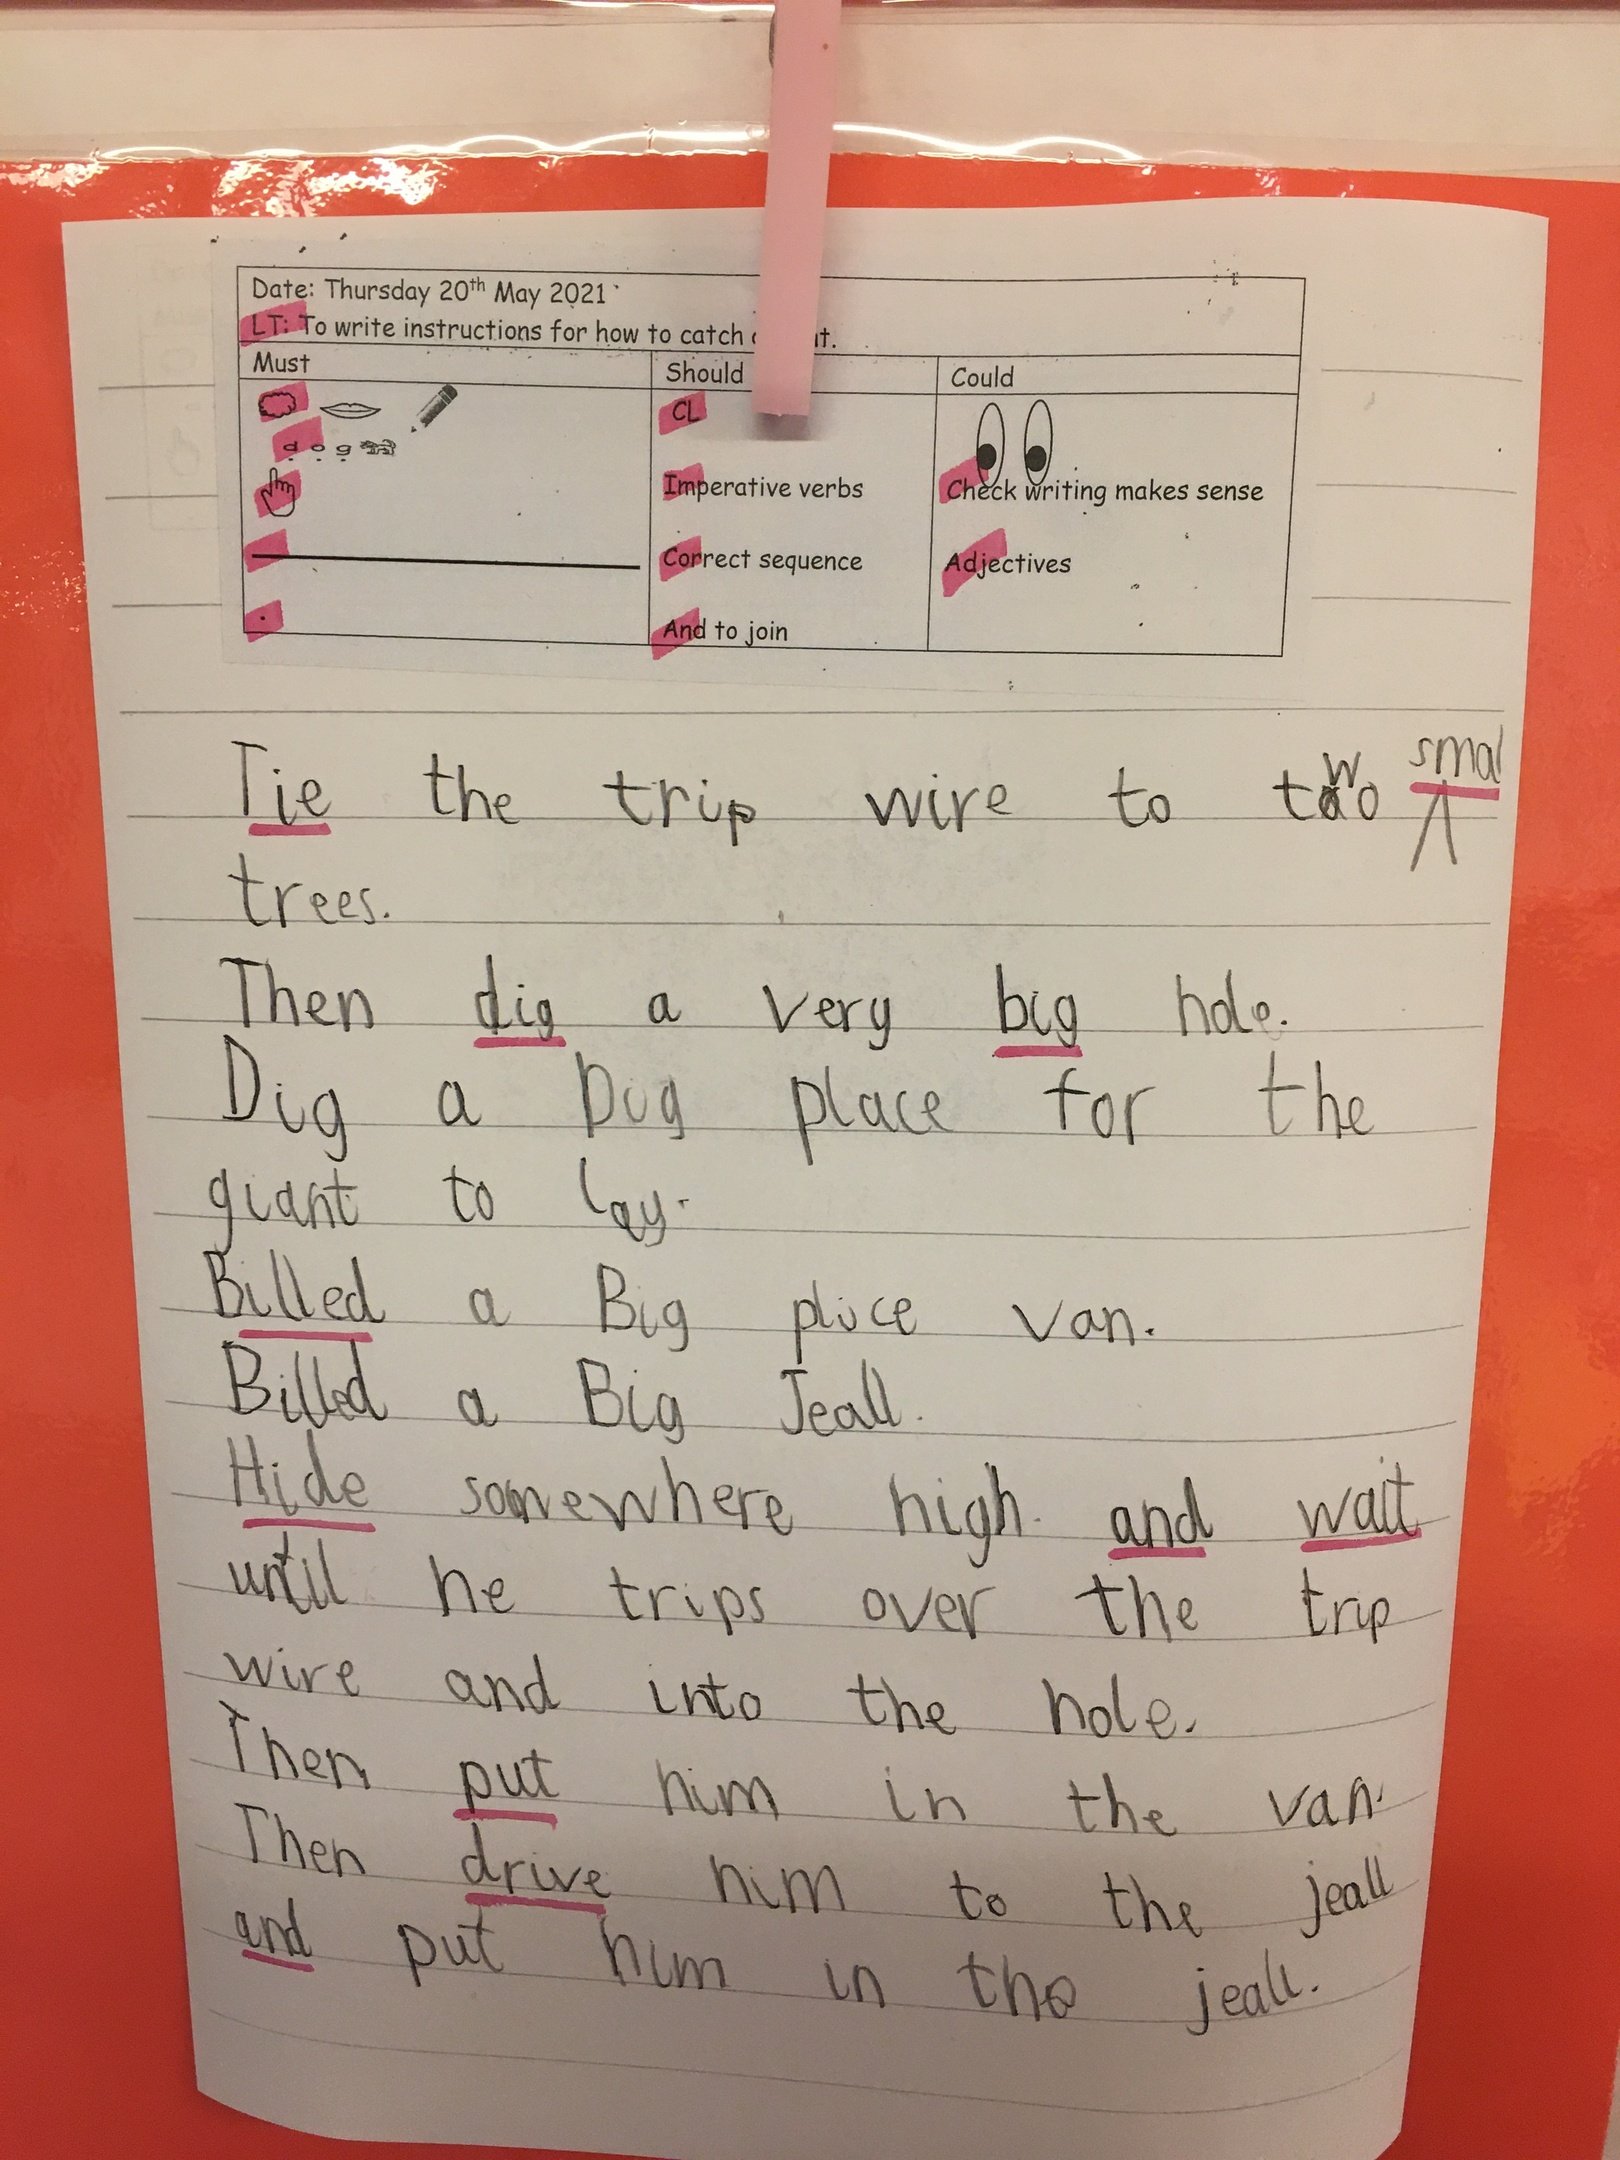 Date: Thursday 20th May 2021
LT: To write instructions for how to catch
Must Should Could
CL
dog
Imperative verbs Check writing makes sense
Correct sequence Adjectives
And to join
smal
Tie the trip wire to two
trees.
Then dig a very big hole.
Dig a place for the
giant to lay.
Billed a Big plice van.
Billed a Big Jeall.
Hide somewhere high and wait
until he trips over the trip
wire and into the hole.
Then put him in the van.
Then drive him to the jeall
and put him in the jeall.